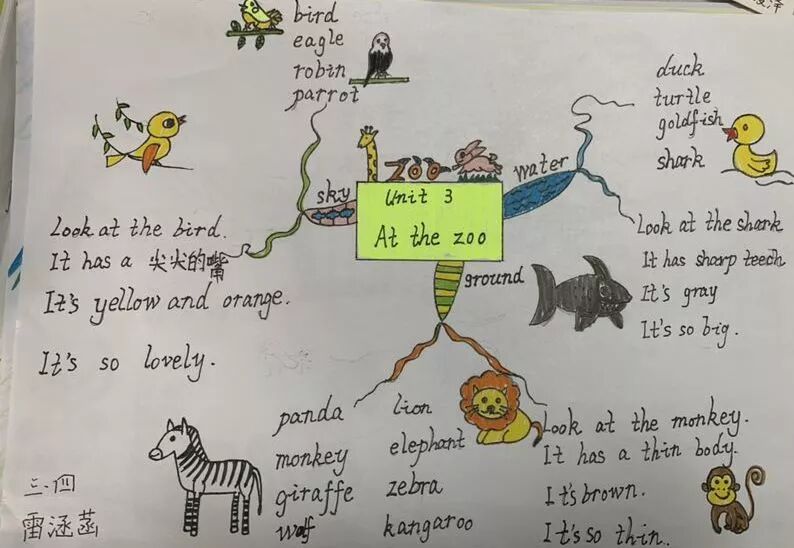 bird
eagle
robin
parrot
duck
turtle
goldfish
shark
ZOO
sky
water
Unit 3
At the zoo
ground
Look at the bird.
It has a 尖尖的嘴
It's yellow and orange.
It's so lovely.
Look at the shark
It has sharp teech
It's gray
It's so big.
panda
monkey
giraffe
wolf
lion
elephant
zebra
kangaroo
Look at the monkey.
It has a thin body.
It's brown.
It's so thin.
三.四
雷涵菡